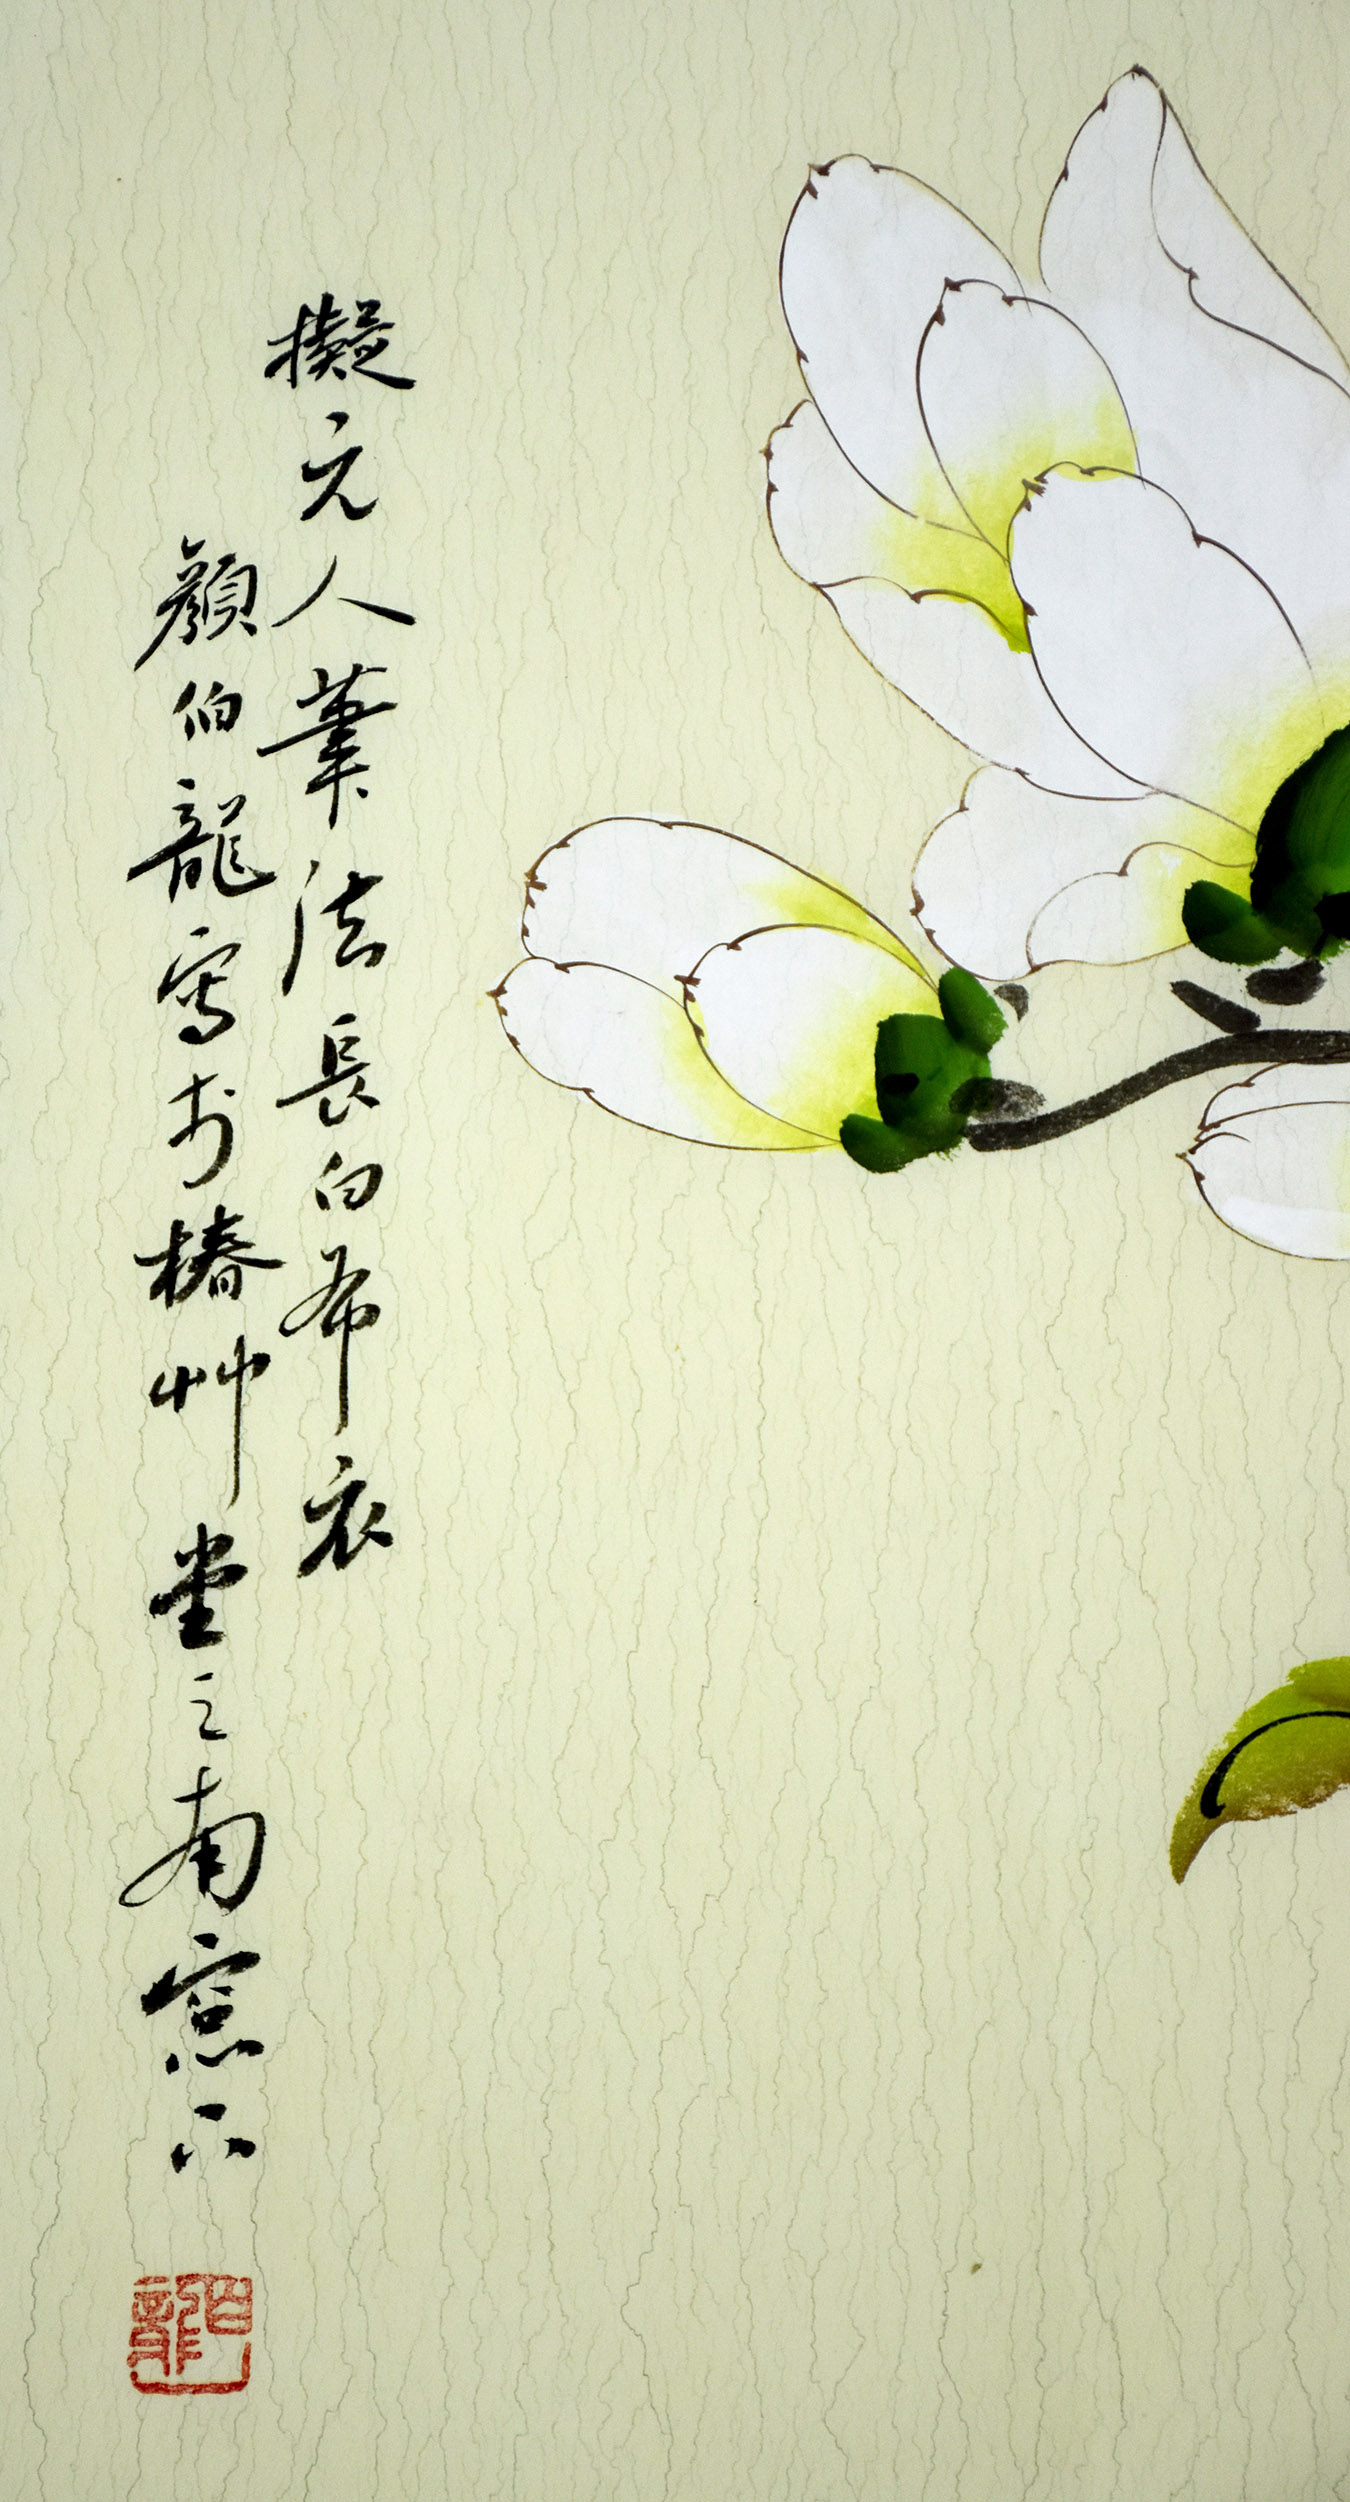 擬元人筆法長白布衣
顏伯龍寫於椿艸堂之南窓下
伯龍